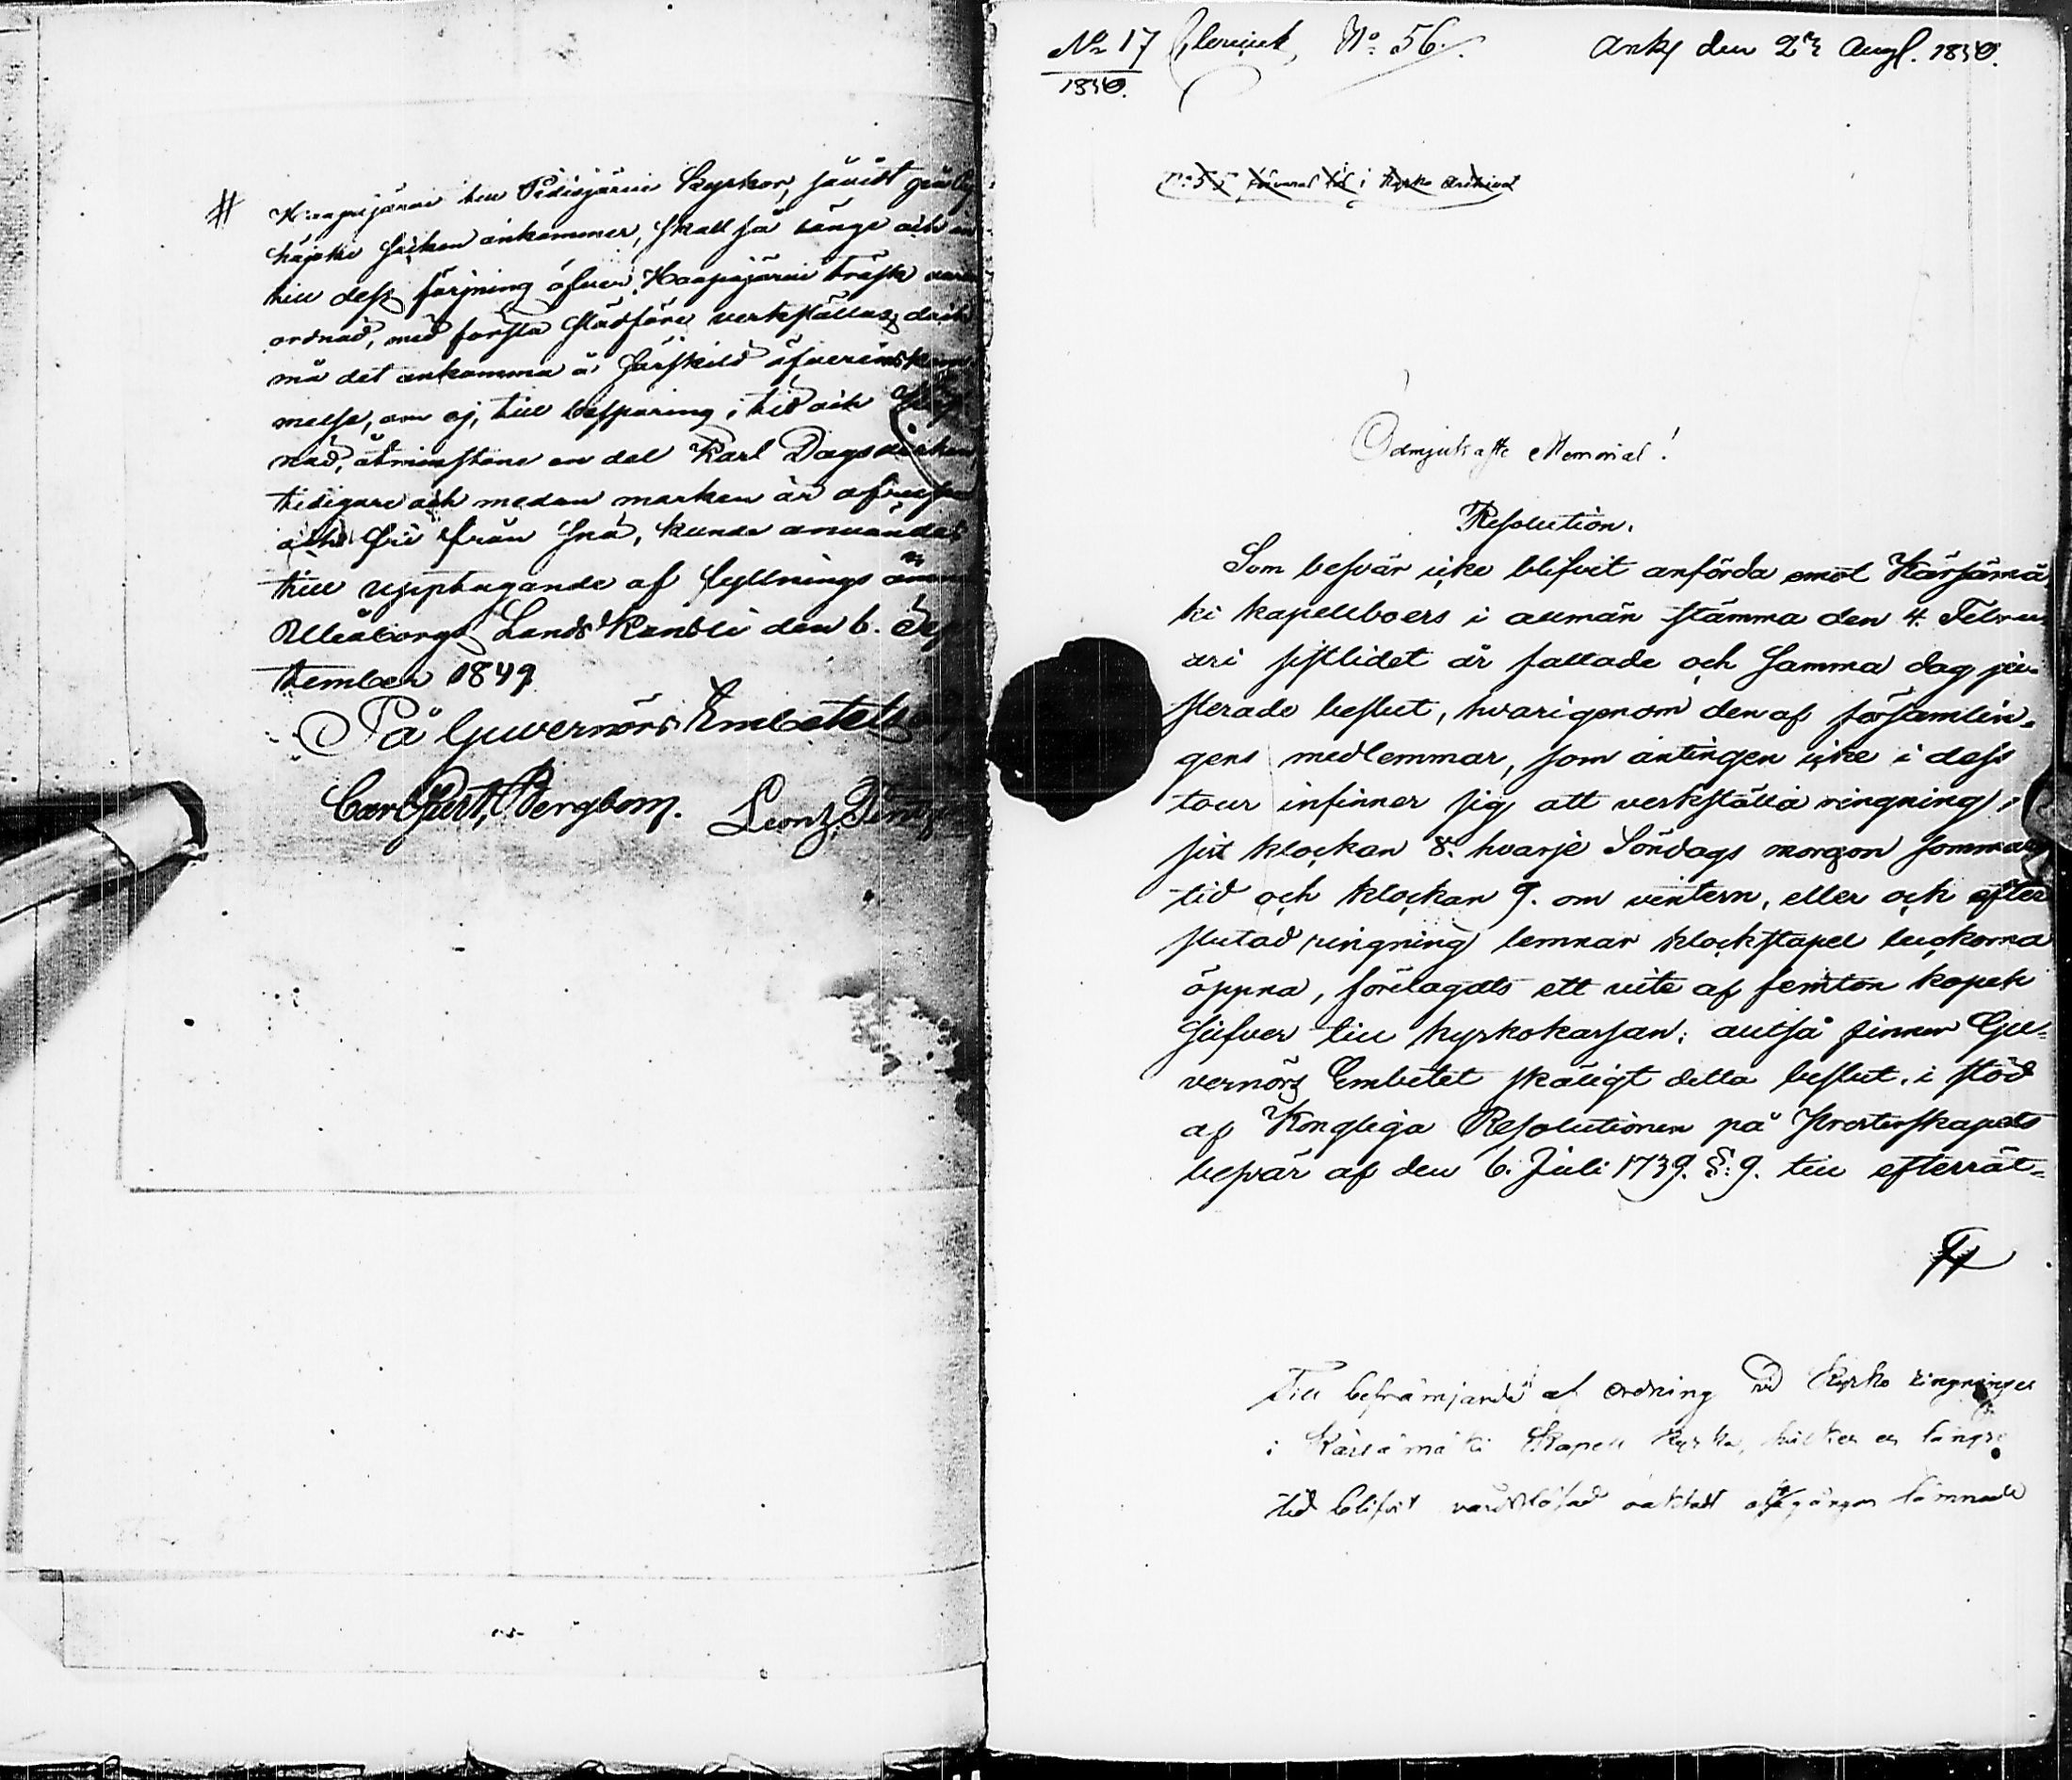 #
Haapajärvi till Pidisjärvi Kyrkor, såvidt
häjoki socken ankommer, skall så länge och
till dess färjning öfver Haapajärvi träsk
ordnad, med första slädföre verkställas; doch
må det ankomma å särskild öfverenskom
melse, om ej, till besparing i tid och
nad, åtminstone en del Karl Dagsverken
tidigare och medan marken är
och fri från snö, kunde användas
till upptagande af fyllnings
Uleåborgs Lands Kansli den 6. Sep
tember 1849
På Guvernörs Embetets
Carl Gust. Bergbom.
No 17
1850.
No 56.
Ank. den 2 Aug. 1850.
i Kyrko Archivet
Ödmjukaste Memorial!
Resolution.
Som besvär icke blifvit anförda emot Kärsämä
ki kapellboers i allmän stämma den 4. Febru
ari sistlidet år fattade och samma dag ju-
sterade beslut, hvarigenom den af församlin-
gens medlemmar, som antingen icke i dess
tour infinner sig att verkställa ringning,
sist klockan 8. hvarje Söndags morgon sommar
tid och klockan 9. om vintern, eller och efter
slutad ringning lemnar klockstapel luckorna
öppna, förelagdts ett vite af femton kopek
Silfver till kyrkokassan; alltså finner Gu-
vernörs Embetet skäligt detta beslut, i stöd
af Kongliga Resolutionen på Presterskapets
besvär af den 6. Juli 1739. §. 9. till efterrät-
Till befrämjande af ordning vid Kyrko ringningen
i Kärsämäki Kapell Kyrka, hvilken en längre
tid blifvit vårdslösad oaktadt gångor lämnade